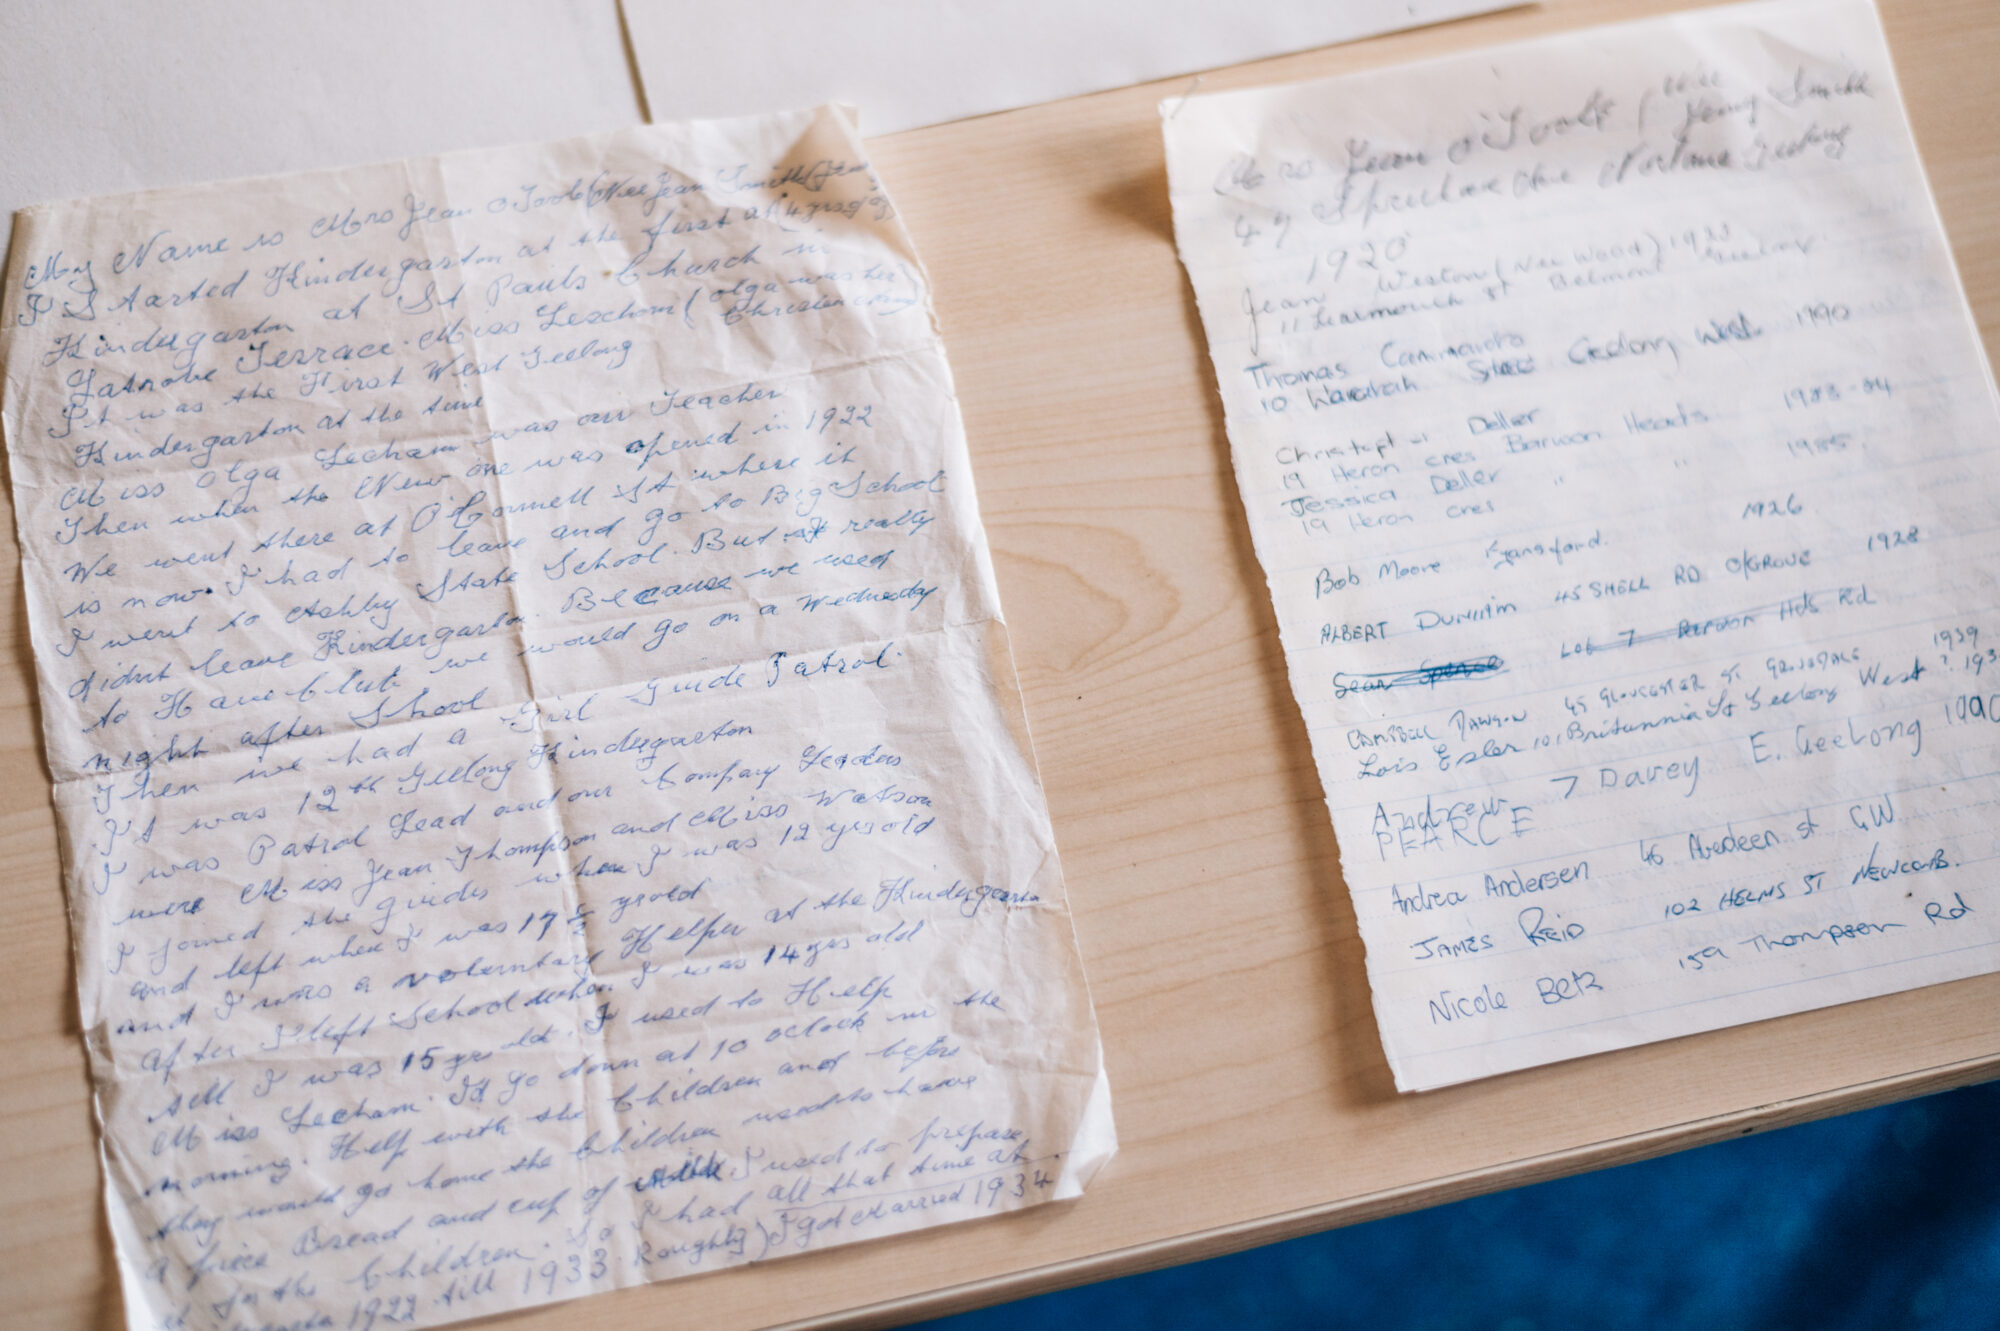 My Name is Mrs Jean O'Toole (Nee Jean Smith
I Started Kindergarton at the first at 4 yrs
Kindergarton at St Pauls Church in
Latrobe Terrace. Miss Lescham (Olga was her
It was the First West Geelong Christen
Kindergarton at the time
Miss Olga Lecham was our Teacher
Then when the New one was opened in 1922
We went there at O'Connell St where it
is now. I had to leave and go to Big School
I went to Ashby State School. But really
didnt leave Kindergarton. Because we used
to Have Club we would go on a Wednesday
night after School
Then we had a Girl Guide Patrol.
It was 12th Geelong Kindergarton
I was Patrol Lead and our Company Leaders
were Miss Jean Thompson and Miss Watson
I joined the guides when I was 12 yrs old
and left when I was 17½ yrs old
and I was a voluntary Helper at the Kindergarton
after I left School when I was 14 yrs old
till I was 15 yrs old. I used to Help
Miss Lecham. I'd go down at 10 oclock in the
morning. Help with the Children and before
they would go home the Children used to have
a piece Bread and cup of milk I used to prepare
it for the Children. So I had all that time at
1922 till 1933. Roughly) I got Married 1934
Mrs Jean O'Toole (Nee Jenny Smith
47 Norlane Geelong
1920
Jean Weston (Nee Wood) 1923
11 Learmonth St Belmont Geelong
Thomas Cammaroto
10 Waratah Street Geelong West 1990
Christopher Deller 1983-84
19 Heron cres Barwon Heads
Jessica Deller " " 1985
19 Heron cres
Bob Moore Fyansford. 1926
ALBERT 45 SHELL RD O/GROVE 1928
Sean Spence Lot 7 Barwon Hds Rd
CAMPBELL DAWSON 45 GLOUCESTER ST GROVEDALE 1939
Lois Esler 101 Britannia St Geelong West ? 193
Andrew 7 Davey E. Geelong 1990
PEARCE
Andrea Andersen 46 Aberdeen st GW
JAMES REID 102 HELMS ST NEWCOMB.
Nicole Betz 159 Thompson Rd